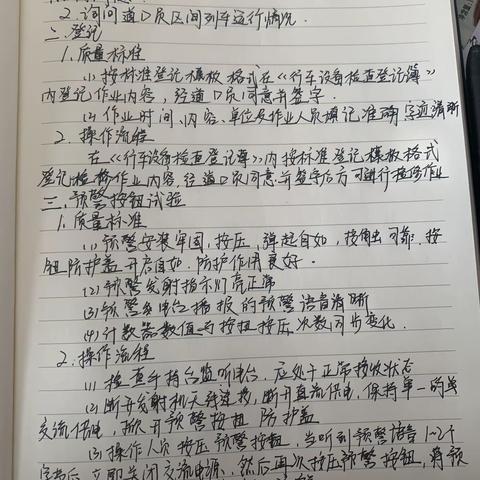 2. 询问道口员区间列车运行情况.
二. 登记
1. 质量标准
(1) 按标准登记模板格式在《行车设备检查登记簿》
内登记作业内容, 经道口员同意并签字.
(2) 作业时间、内容、单位及作业人员填记准确字迹清晰
2. 操作流程
在《行车设备检查登记簿》内按标准登记模板格式
登记检修作业内容, 经道口员同意并签字后方可进行检修作业
三. 预警按钮试验
1. 质量标准
(1) 预警安装牢固, 按压, 弹起自如, 接触可靠. 按
钮防护盖开启自如. 防护作用良好.
(2) 预警发射指示灯亮正常
(3) 预警电台播报的预警语音清晰
(4) 计数器数值与按钮按压次数同步变化.
2. 操作流程
(1) 检查手持台监听电台, 应处于正常接收状态
(2) 断开发射机天线连接, 断开直流供电, 保持单一的单
交流供电, 掀开预警按钮防护盖
(3) 操作人员按压预警按钮, 当听到预警语音1~2个
字节后, 立即关闭交流电源, 然后再次按压预警按钮, 将预